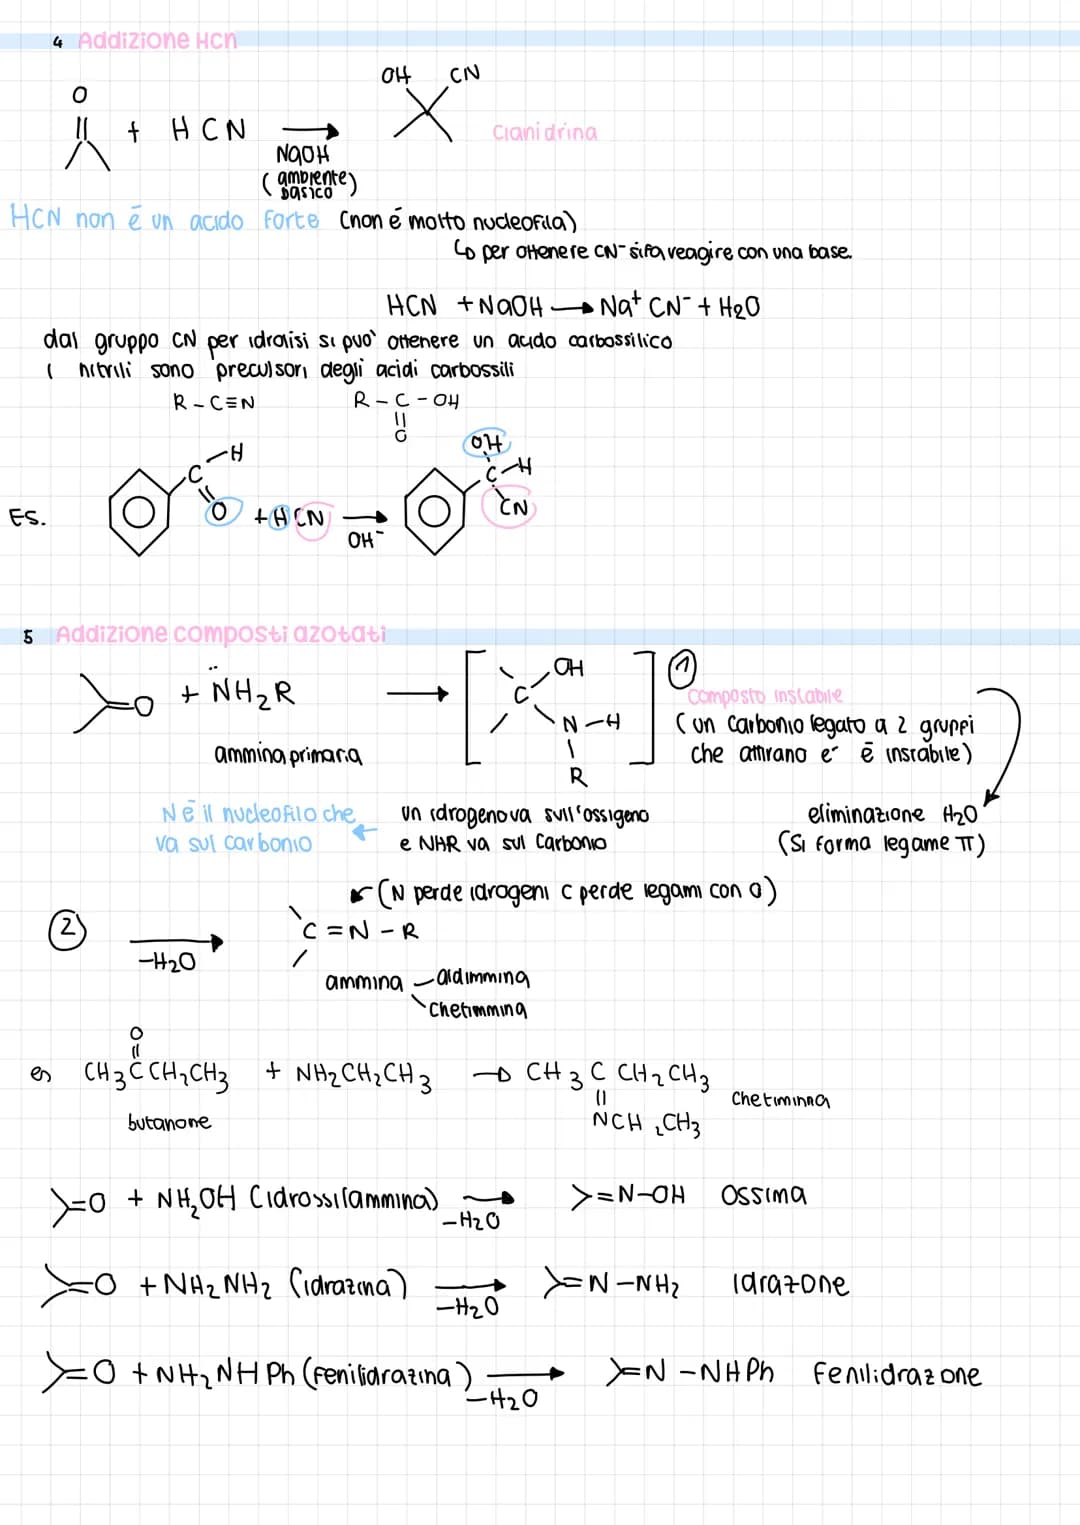 4 Addizione HCN
OH CN
O
|| + HCN → Cianidrina
NaOH
(ambiente basico)
HCN non é un acido Forte (non é molto nucleofila)
↳ per ottenere CN⁻ si fa reagire con una base.
HCN + NaOH → Na⁺ CN⁻ + H₂O
dal gruppo CN per idrolisi si può ottenere un acido carbossilico
i nitrili sono preculsori degli acidi carbossili
R - C≡N R - C - OH
||
O
ES. C - H O + HCN → OH C - H CN
OH⁻
5 Addizione composti azotati
=O + N̈H₂R → [ C OH N - H R ] ① composto instabile
(un carbonio legato a 2 gruppi
che attirano e⁻ é instabile)
ammina primaria
N é il nucleofilo che va sul carbonio
← un idrogeno va sull'ossigeno
e NHR va sul Carbonio
eliminazione H₂O
(Si forma legame π)
(N perde idrogeni C perde legami con O)
② → C = N - R
-H₂O
ammina - aldimmina
Chetimmina
O
||
es CH₃CCH₂CH₃ + NH₂CH₂CH₃ → CH₃ C CH₂CH₃ Chetiminna
||
butanone NCH₂CH₃
=O + NH₂OH (idrossilammina) → =N-OH Ossima
-H₂O
=O + NH₂NH₂ (idrazina) → =N-NH₂ Idrazone
-H₂O
=O + NH₂NHPh (Fenilidrazina) → =N-NHPh Fenilidrazone
-H₂O